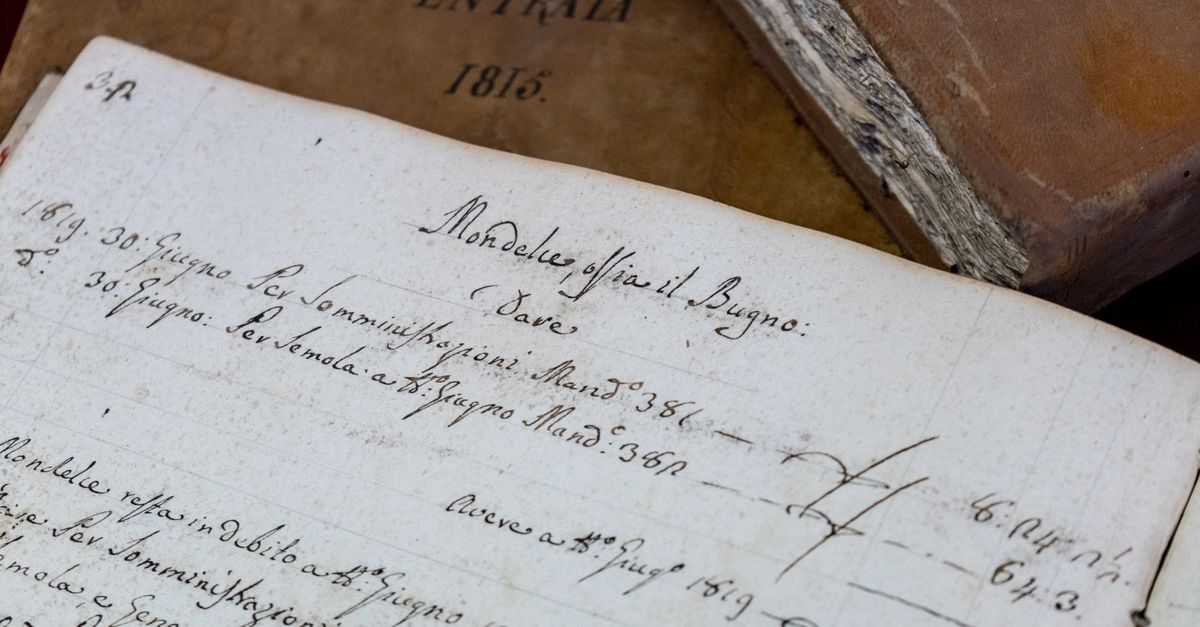 ENTRATA
1815.
Mondelce, ossia il Bugno:
Dare
1819. 30: Giugno Per Somministrazioni Mand.º 381
d.º 30. Giugno: Per Semola a tt.º Giugno Mand.º 382
64. 3.
Avere a tt.º Giug.º 1819
Mondelce resta in debito a tt.º Giugno
Per Somministrazioni
Semola, e